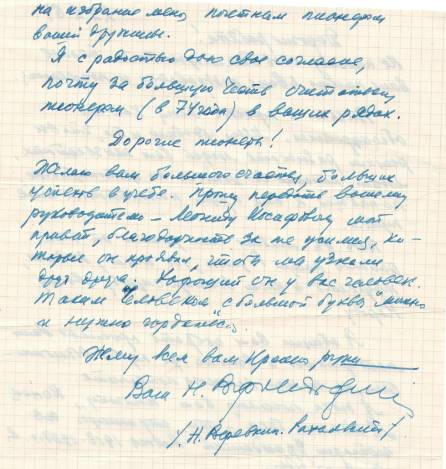 на избрание меня почетным пионером
вашей дружины.
Я с радостью даю свое согласие,
почту за большую честь счастливым
пионером (в 74 года) в ваших рядах.
Дорогие пионеры!
Желаю вам большого счастья, больших
успехов в учебе. Прошу передать вашему
руководителю – Леониду Иосифовичу мой
привет, благодарность за те усилия, ко-
торые он проявил, чтобы мы узнали
друг друга. Хороший он у вас человек.
Таким "Человеком с большой буквы" можно
и нужно гордиться.
Жму всем вам крепко руки
Ваш Н.
/Н. Веревкин-Рахальский/